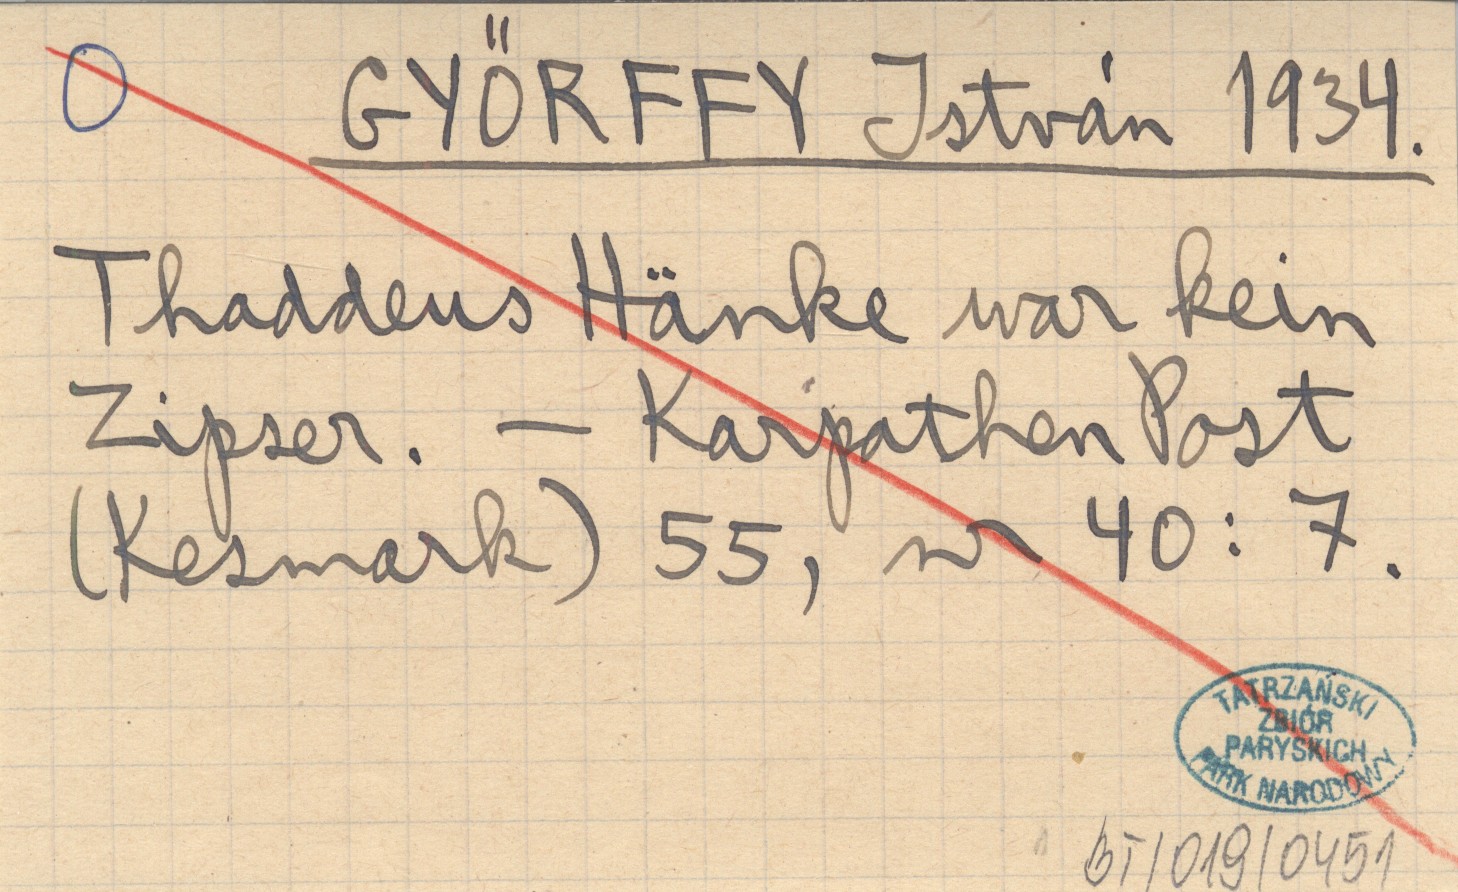 O GYŐRFFY István 1934.
Thaddeus Hänke war kein
Zipser. — Karpathen Post
(Kesmark) 55, nr 40: 7.
TATRZAŃSKI
ZBIÓR
PARYSKICH
PARK NARODOWY
BT/019/0451